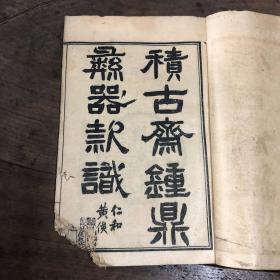 積古齋鐘鼎
彝器款識
仁和
黄俊